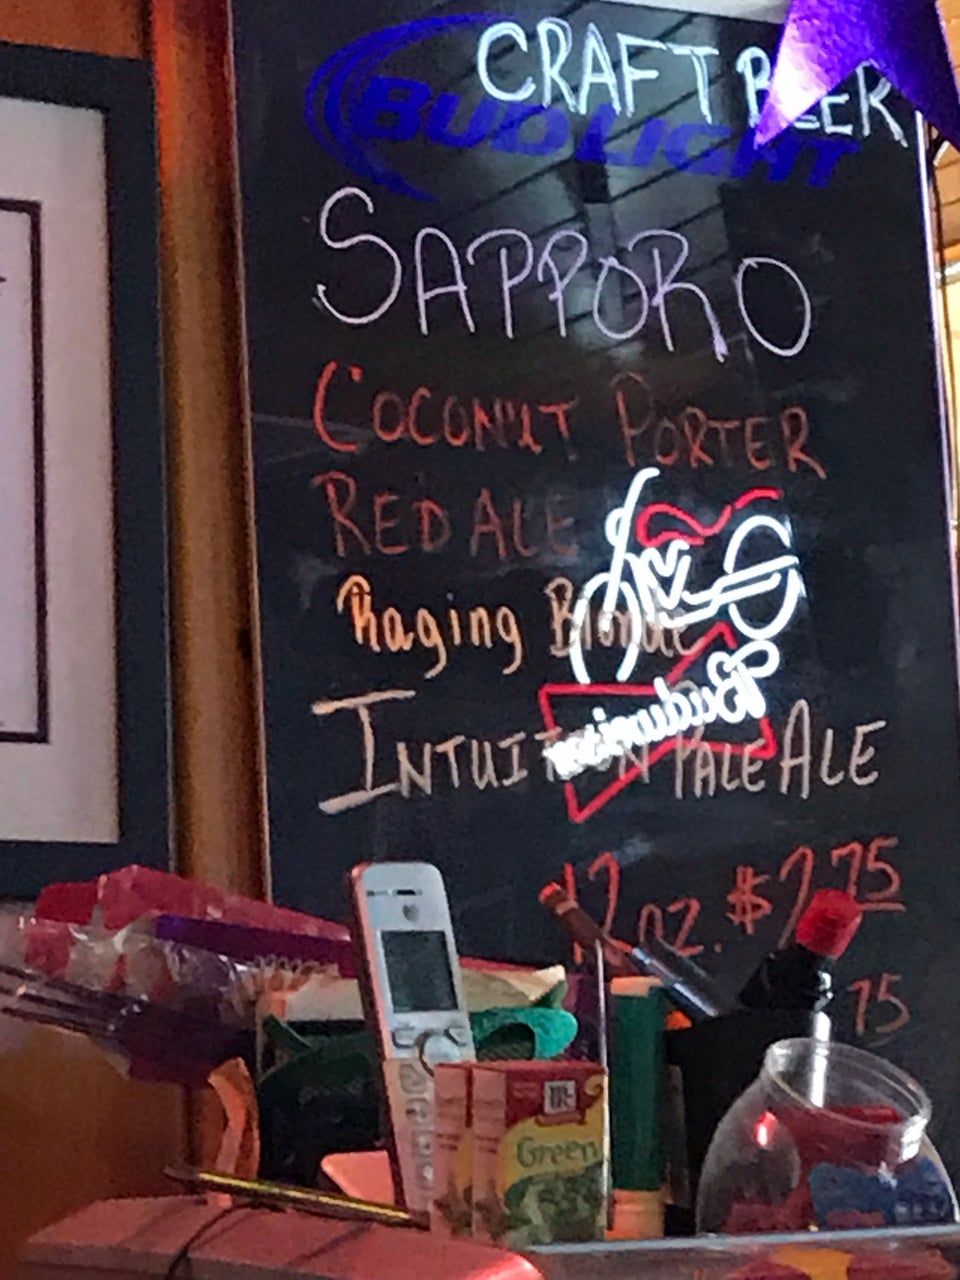 CRAFT BEER
BUD LIGHT
SAPPORO
COCONUT PORTER
RED ALE
Raging Blonde
Budweiser
INTUITION PALE ALE
12 oz. $2.75
75
Green